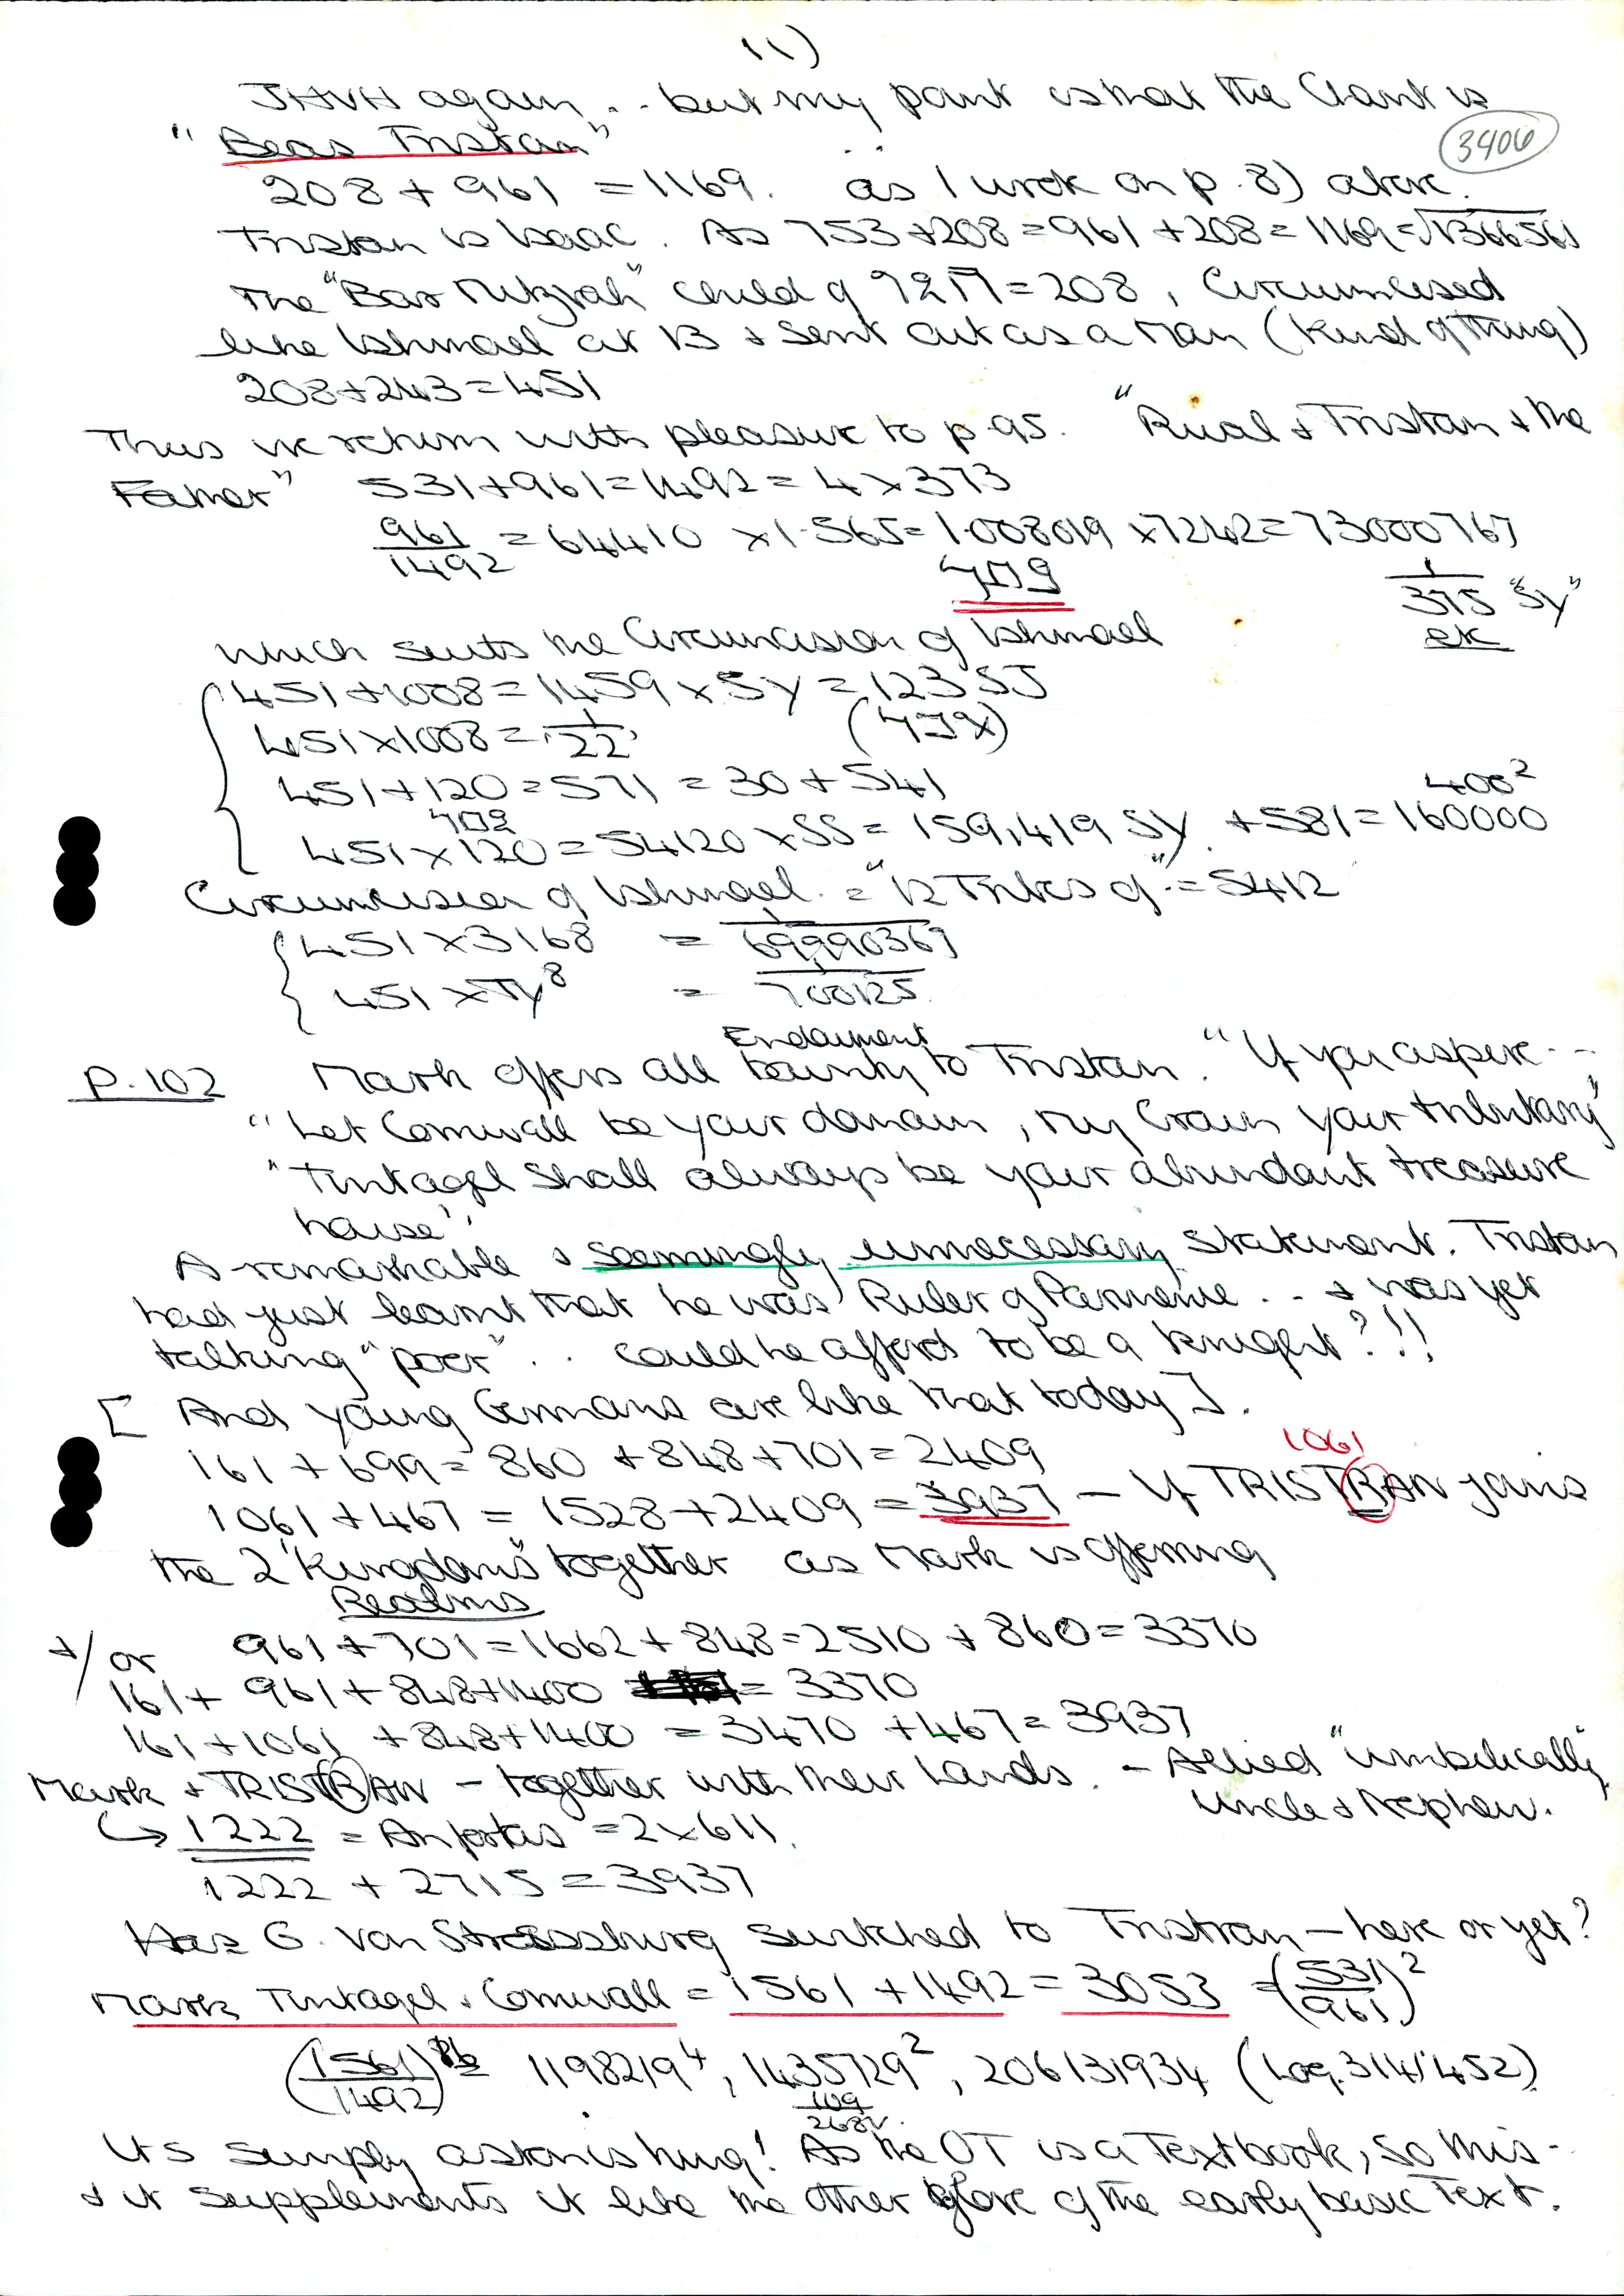 11)
JHVH again .. but my point is that the Chant is
"Beas Tristan"
3406
208 + 961 = 1169. as I wrote on p. 8) above.
Tristan is Isaac. As 753+208=961+208=1169=√1366561
The "Bar Mitzvah" could of = 208, Circumcised
like Ishmael at 13 & sent out as a Man (kind of thing)
208+243=451
Thus we return with pleasure to p 95. "Rual & Tristan & the
Father" 531+961=1492=4×373
961/1492 = 64410 ×1.565=1.008019 ×7242=73000767
1/375 "SY"
etc
which suits the Circumcision of Ishmael
451+1008=1459×SY=123SJ
451×1008=1/22
451+120=571=30+541
451×120=54120×SS=159,419 SY +581=160000
400²
Circumcision of Ishmael. = "12 Tribes of" = 5412
451×3168 = 1/69990369
451×JY⁸ = 1/700125
Endowment
P.102 Mark offers all bounty to Tristan. "If you aspire --
"Let Cornwall be your domain, my Crown your tributary"
"Tintagel shall always be your abundant treasure
house".
A remarkable & seemingly unnecessary statement. Tristan
had just learnt that he was Ruler of Parmenie .. & was yet
talking "poor" .. could he afford to be a knight?!!
[And young Germans are like that today].
161+699=860 +848+701=2409
1061
1061+467=1528+2409=3937 — If TRISTRAN joins
the 2 "Kingdoms" together as Mark is offering
Realms
+/or 961+701=1662+848=2510+860=3370
161+961+848+1400 = 3370
161+1061+848+1400=3470+467=3937
Mark & TRISTRAN - together with their Lands. - Allied "umbilically"
Uncle & Nephew.
↳ 1222 = Anfortas = 2×611.
1222+2715=3937
Has G. von Strassburg switched to Tristran — here or yet?
Mark Tintagel & Cornwall = 1561+1492=3053=(531/961)²
(1561/1492)¹⁶ 1198219⁴, 1435729², 206131934 (Log. 314/452)
109
It's simply astonishing! As the OT is a Textbook, so this -
& it supplements it like the other glove of the early basic Text.